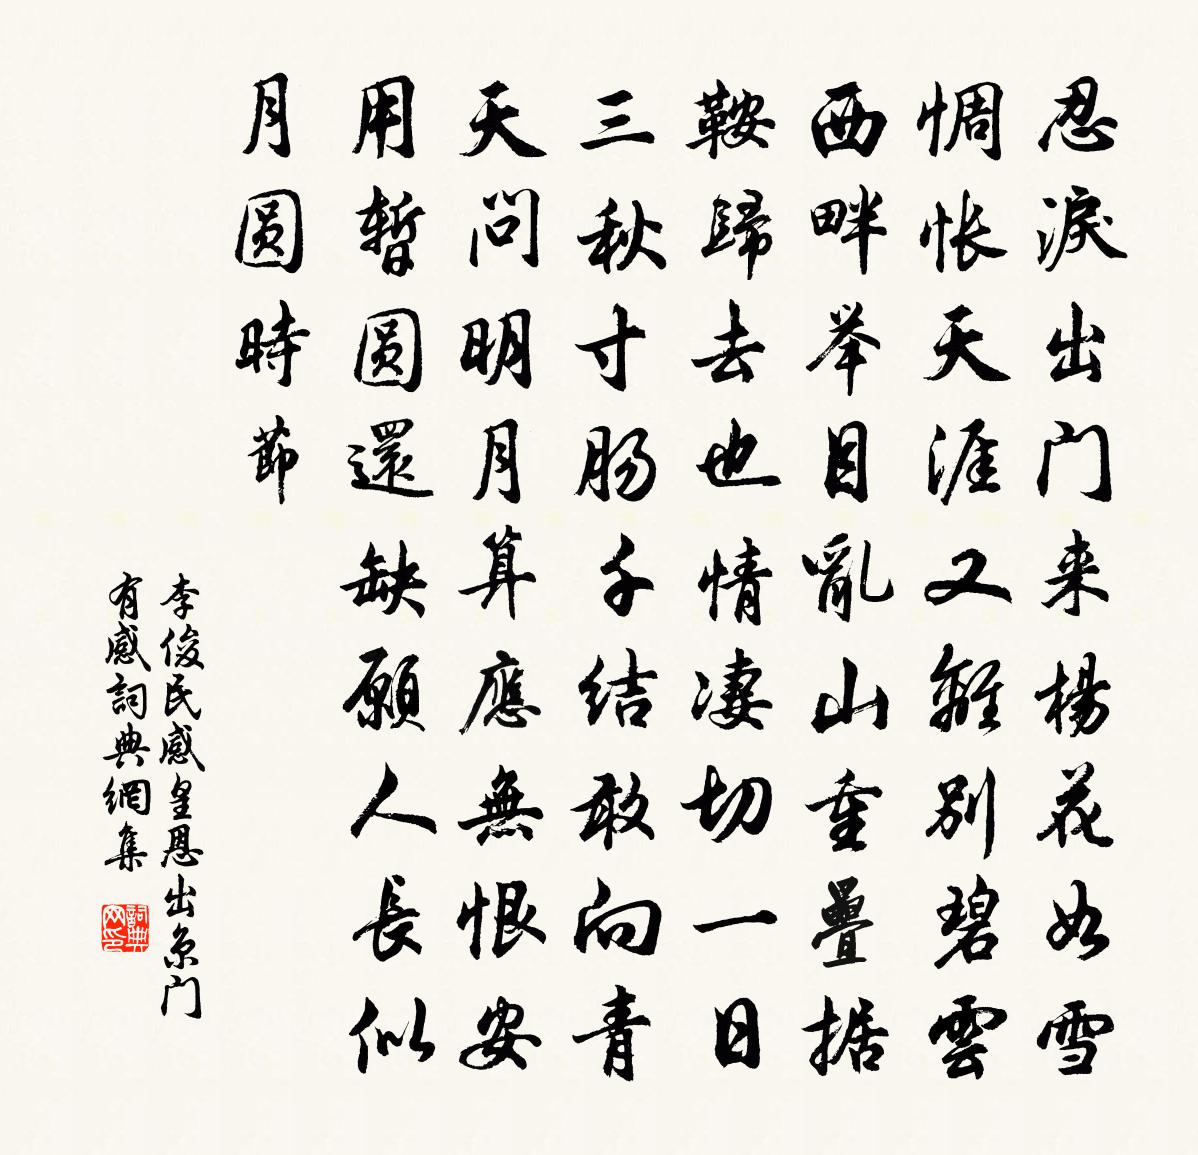 忍淚出门来楊花如雪
惆怅天涯又離别碧雲
西畔举目亂山重疊据
鞍歸去也情凄切一日
三秋寸肠千结敢向青
天问明月算應無恨安
用暫圆還缺願人長似
月圆時節
李俊民感皇恩出京门
有感詞典網集
詞典
网印